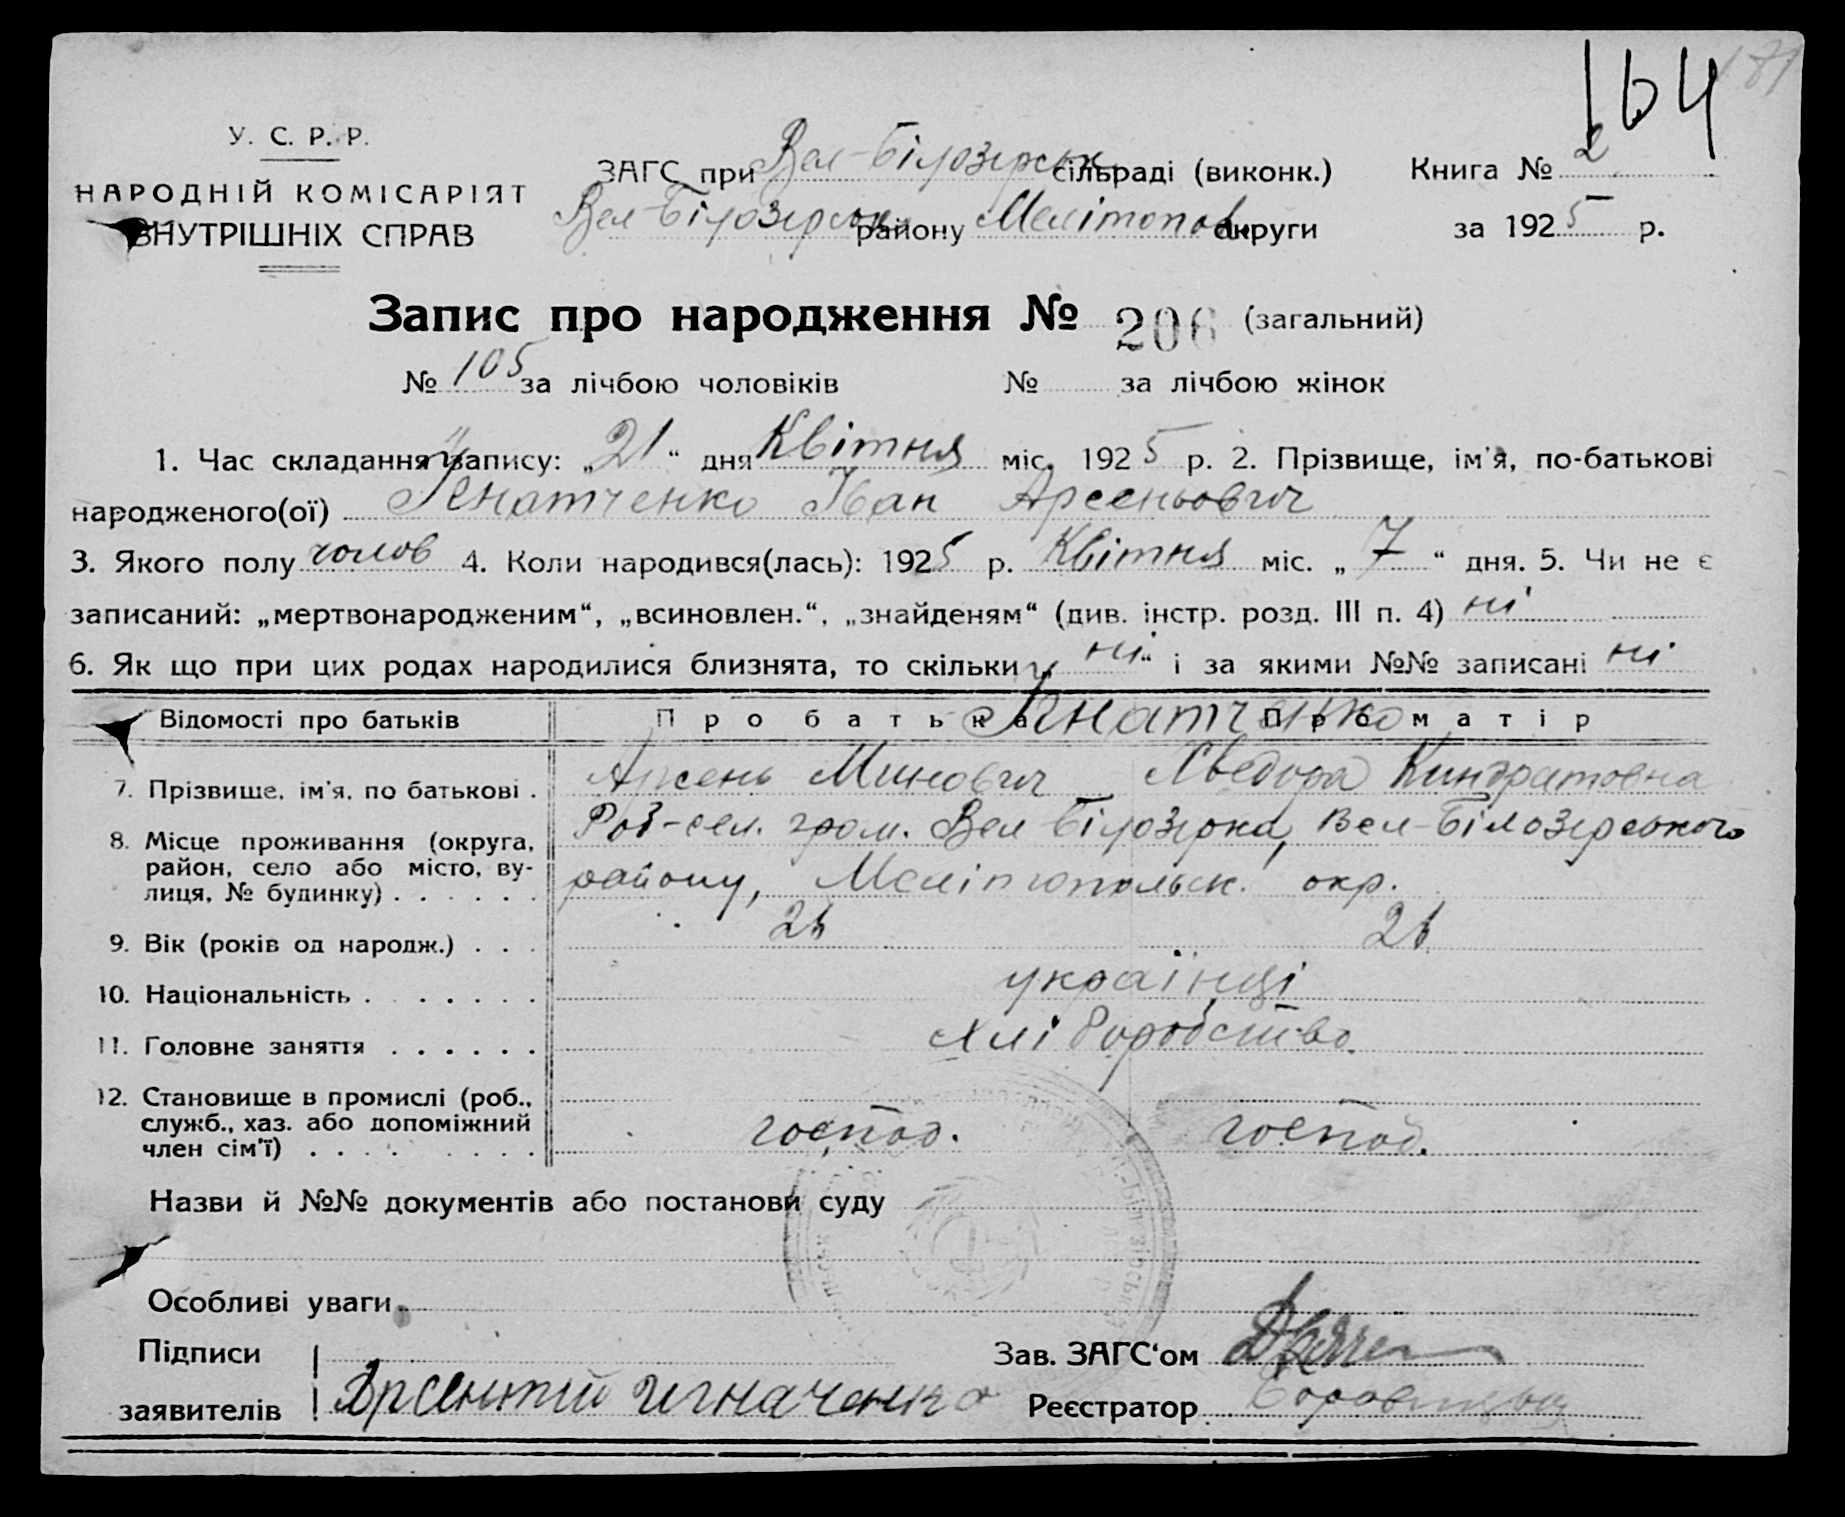 164
У. С. Р. Р.
НАРОДНІЙ КОМІСАРІЯТ
ВНУТРІШНІХ СПРАВ
ЗАГС при Вел-Білозірськ. сільраді (виконк.) Книга № 2
Вел-Білозірськ. району Мелітопол. округи за 1925 р.
Запис про народження № 206 (загальний)
№ 105 за лічбою чоловіків № за лічбою жінок
1. Час складання запису: „21“ дня Квітня міс. 1925 р. 2. Прізвище, ім'я, по-батькові
народженого(ої) Ігнатченко Іван Арсеньович
3. Якого полу чолов 4. Коли народився(лась): 1925 р. Квітня міс. „7“ дня. 5. Чи не є
записаний: „мертвонародженим“, „всиновлен.“, „знайденям“ (див. інстр. розд. III п. 4) ні
6. Як що при цих родах народилися близнята, то скільки „ні“ і за якими №№ записані ні
Відомості про батьків Про батька Про матір
Ігнатченко
7. Прізвище, ім'я, по батькові . Арсень Минович Хведора Киндратовна
8. Місце проживання (округа, район, село або місто, вулиця, № будинку) . . . . . . Роз-сел. гром. Вел Білозірка, Вел-Білозірського
району, Мелітопольск. окр.
9. Вік (років од народж.) . . .
10. Національність . . . . . . . українці
11. Головне заняття . . . . . . хліборобство
12. Становище в промислі (роб., служб., хаз. або допоміжний член сім'ї) . . . . . . . . господ. господ.
Назви й №№ документів або постанови суду
Особливі уваги
Підписи
заявителів Арсентій Игначенко
Зав. ЗАГС'ом
Реєстратор